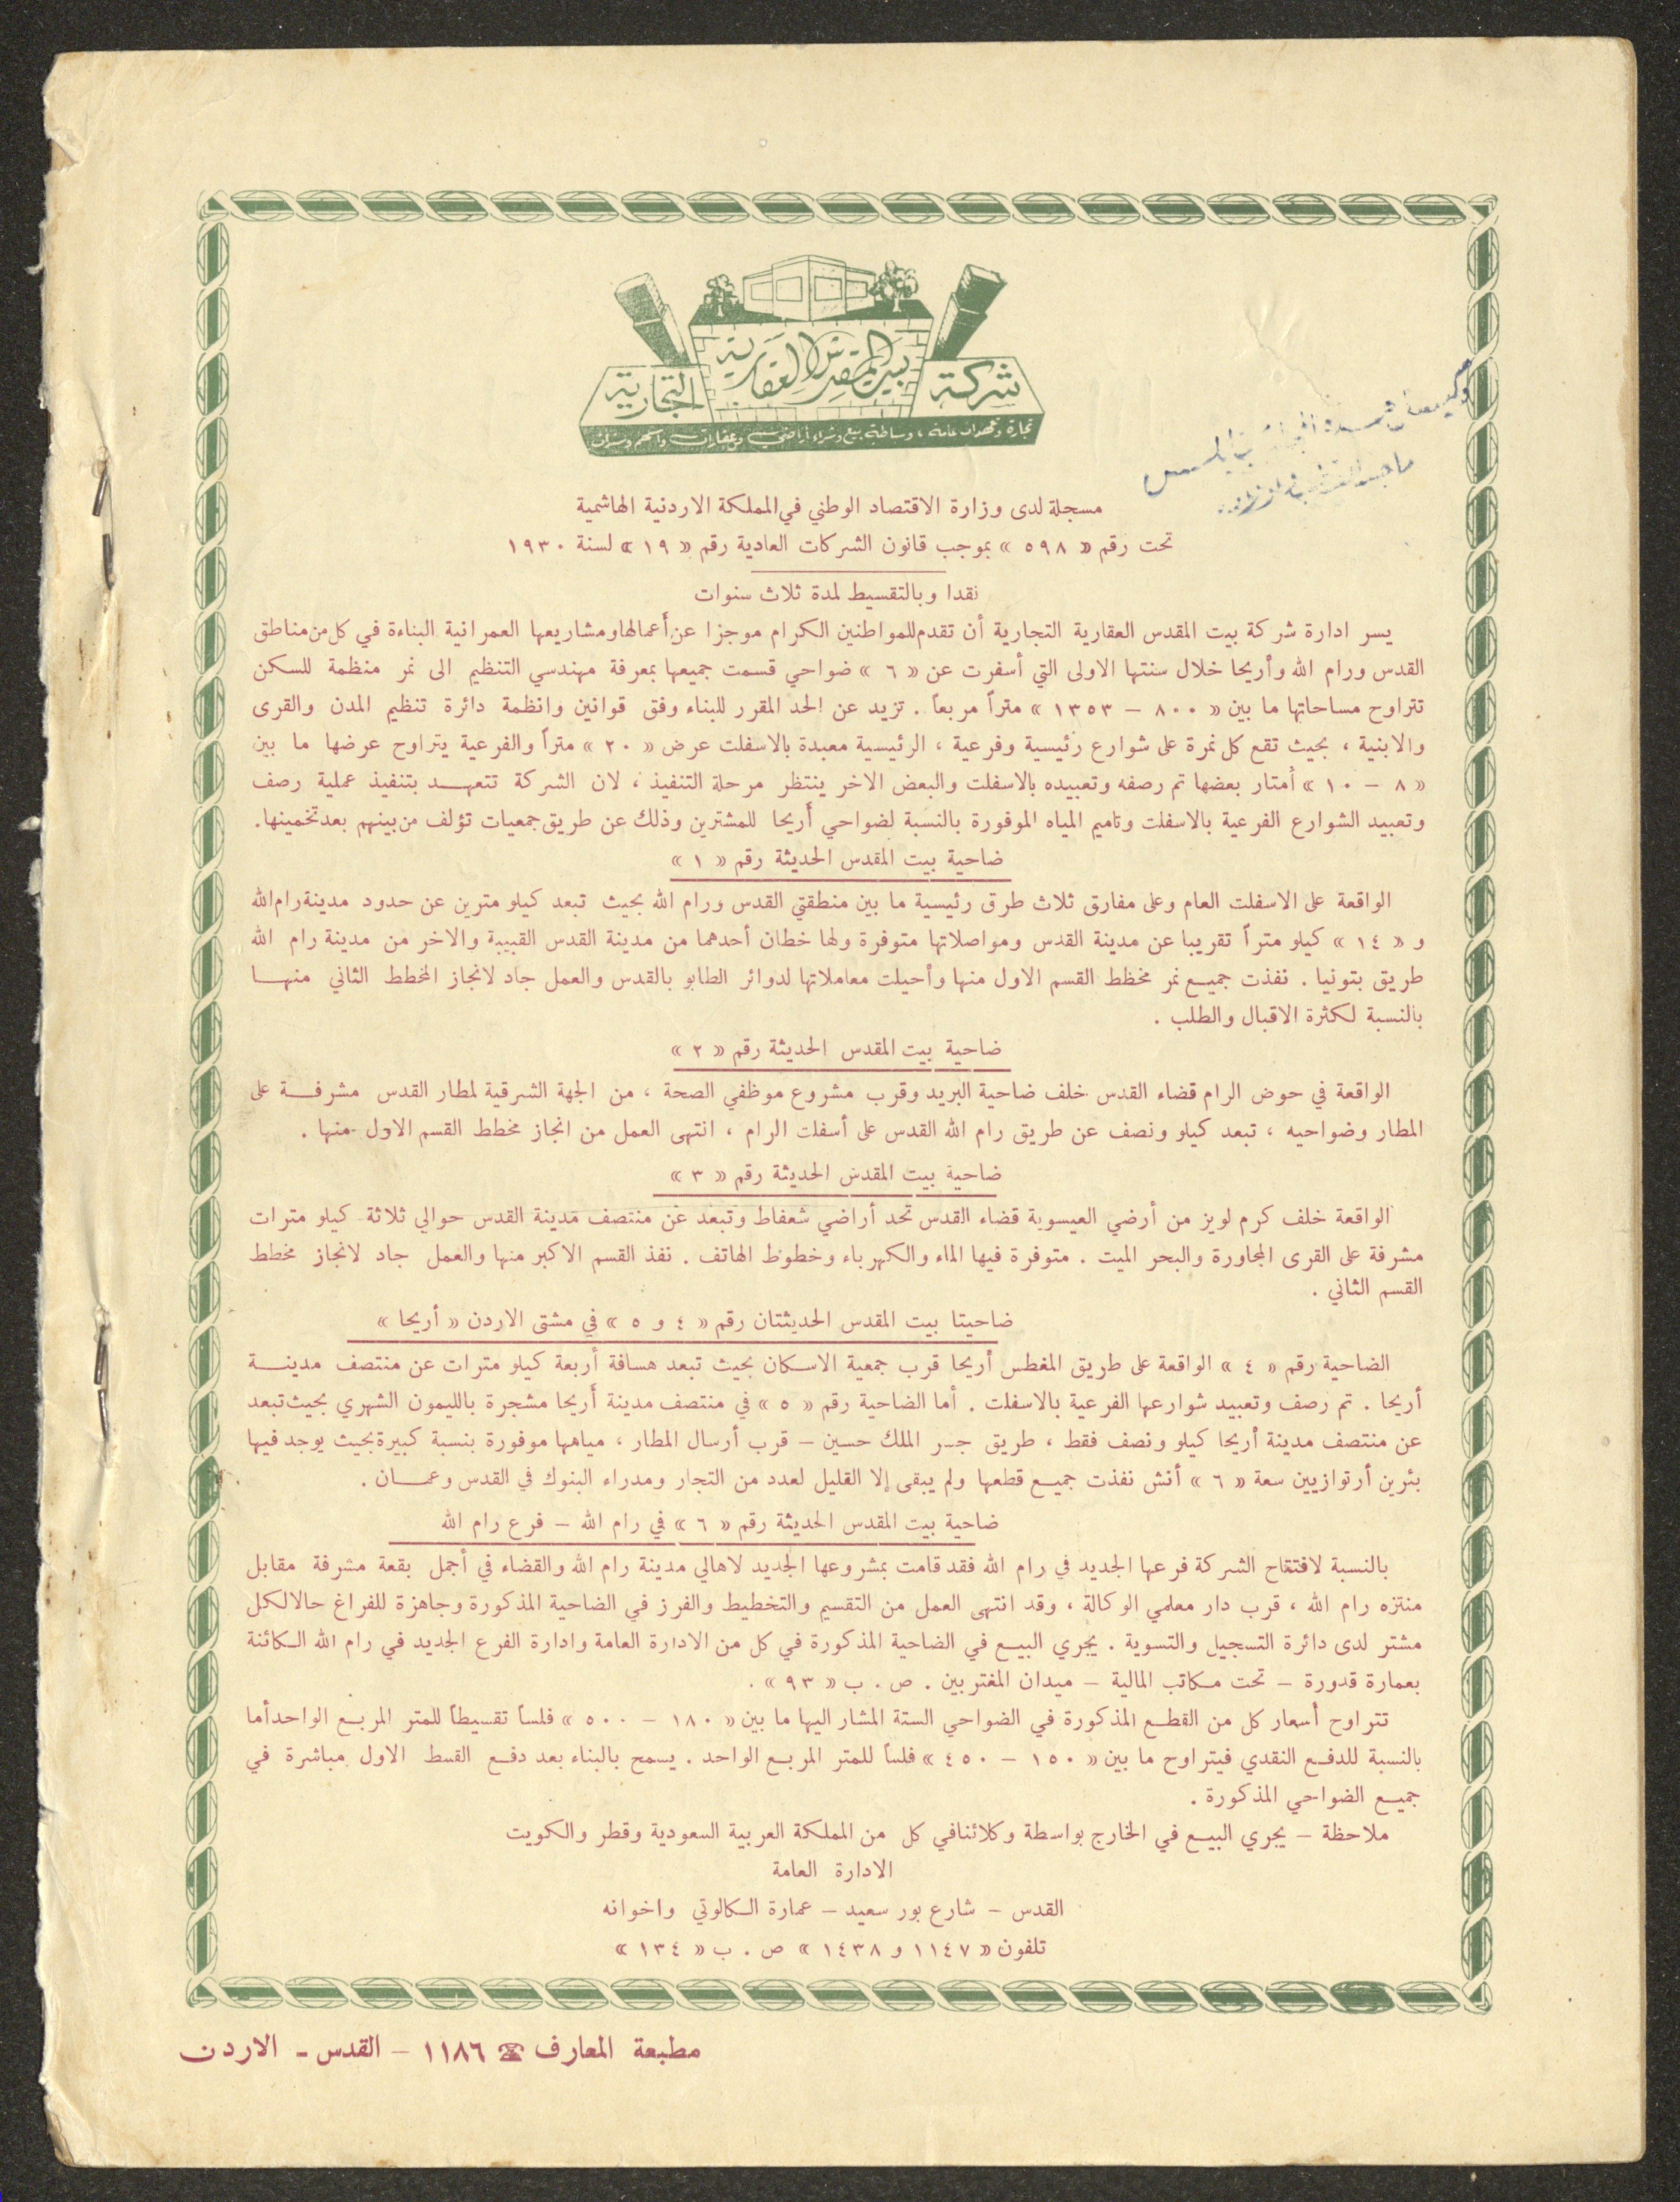 شركة
بيت المقدس العقارية
التجارية
تجارة وتعهدات عامة ، وساطة بيع وشراء اراضي وعقارات واسهم وسندات
مسجلة لدى وزارة الاقتصاد الوطني في المملكة الاردنية الهاشمية
تحت رقم « ٥٩٨ » بموجب قانون الشركات العادية رقم « ١٩ » لسنة ١٩٣٠
نقدا وبالتقسيط لمدة ثلاث سنوات
يسر ادارة شركة بيت المقدس العقارية التجارية أن تقدم للمواطنين الكرام موجزا عن أعمالها ومشاريعها العمرانية البناءة في كل من مناطق
القدس ورام الله وأريحا خلال سنتها الاولى التي أسفرت عن « ٦ » ضواحي قسمت جميعها بمعرفة مهندسي التنظيم الى نمر منظمة للسكن
تتراوح مساحاتها ما بين « ٨٠٠ – ١٣٥٣ » متراً مربعاً . تزيد عن الحد المقرر للبناء وفق قوانين وانظمة دائرة تنظيم المدن والقرى
والابنية ، بحيث تقع كل نمرة على شوارع رئيسية وفرعية ، الرئيسية معبدة بالاسفلت عرض « ٢٠ » متراً والفرعية يتراوح عرضها ما بين
« ٨ – ١٠ » أمتار بعضها تم رصفه وتعبيده بالاسفلت والبعض الاخر ينتظر مرحلة التنفيذ ، لان الشركة تتعهد بتنفيذ عملية رصف
وتعبيد الشوارع الفرعية بالاسفلت وتاميم المياه الموفورة بالنسبة لضواحي أريحا للمشترين وذلك عن طريق جمعيات تؤلف من بينهم بعد تخمينها.
ضاحية بيت المقدس الحديثة رقم « ١ »
الواقعة على الاسفلت العام وعلى مفارق ثلاث طرق رئيسية ما بين منطقتي القدس ورام الله بحيث تبعد كيلو مترين عن حدود مدينة رام الله
و « ١٤ » كيلو متراً تقريبا عن مدينة القدس ومواصلاتها متوفرة ولها خطان أحدهما من مدينة القدس القبيبة والاخر من مدينة رام الله
طريق بتونيا . نفذت جميع نمر مخطط القسم الاول منها وأحيلت معاملاتها لدوائر الطابو بالقدس والعمل جاد لانجاز المخطط الثاني منها
بالنسبة لكثرة الاقبال والطلب .
ضاحية بيت المقدس الحديثة رقم « ٢ »
الواقعة في حوض الرام قضاء القدس خلف ضاحية البريد وقرب مشروع موظفي الصحة ، من الجهة الشرقية لمطار القدس مشرفة على
المطار وضواحيه ، تبعد كيلو ونصف عن طريق رام الله القدس على أسفلت الرام ، انتهى العمل من انجاز مخطط القسم الاول منها .
ضاحية بيت المقدس الحديثة رقم « ٣ »
الواقعة خلف كرم لويز من أرضي العيسوية قضاء القدس تحد أراضي شعفاط وتبعد عن منتصف مدينة القدس حوالي ثلاثة كيلو مترات
مشرفة على القرى المجاورة والبحر الميت . متوفرة فيها الماء والكهرباء وخطوط الهاتف . نفذ القسم الاكبر منها والعمل جاد لانجاز مخطط
القسم الثاني .
ضاحيتا بيت المقدس الحديثتان رقم « ٤ و ٥ » في مشتى الاردن « أريحا »
الضاحية رقم « ٤ » الواقعة على طريق المغطس أريحا قرب جمعية الاسكان بحيث تبعد مسافة أربعة كيلو مترات عن منتصف مدينة
أريحا . تم رصف وتعبيد شوارعها الفرعية بالاسفلت . أما الضاحية رقم « ٥ » في منتصف مدينة أريحا مشجرة بالليمون الشهري بحيث تبعد
عن منتصف مدينة أريحا كيلو ونصف فقط ، طريق جسر الملك حسين – قرب أرسال المطار ، مياهها موفورة بنسبة كبيرة بحيث يوجد فيها
بئرين أرتوازيين سعة « ٦ » أنش نفذت جميع قطعها ولم يبقى إلا القليل لعدد من التجار ومدراء البنوك في القدس وعمان .
ضاحية بيت المقدس الحديثة رقم « ٦ » في رام الله – فرع رام الله
بالنسبة لافتتاح الشركة فرعها الجديد في رام الله فقد قامت بمشروعها الجديد لاهالي مدينة رام الله والقضاء في أجمل بقعة مشرفة مقابل
منتزه رام الله ، قرب دار معلمي الوكالة ، وقد انتهى العمل من التقسيم والتخطيط والفرز في الضاحية المذكورة وجاهزة للفراغ حالا لكل
مشتر لدى دائرة التسجيل والتسوية . يجري البيع في الضاحية المذكورة في كل من الادارة العامة وادارة الفرع الجديد في رام الله الكائنة
بعمارة قدورة – تحت مكاتب المالية – ميدان المغتربين . ص . ب « ٩٣ » .
تتراوح أسعار كل من القطع المذكورة في الضواحي الستة المشار اليها ما بين « ١٨٠ – ٥٠٠ » فلساً تقسيطاً للمتر المربع الواحد أما
بالنسبة للدفع النقدي فيتراوح ما بين « ١٥٠ – ٤٥٠ » فلساً للمتر المربع الواحد . يسمح بالبناء بعد دفع القسط الاول مباشرة في
جميع الضواحي المذكورة .
ملاحظة – يجري البيع في الخارج بواسطة وكلائنا في كل من المملكة العربية السعودية وقطر والكويت
الادارة العامة
القدس – شارع بور سعيد – عمارة الكالوتي واخوانه
تلفون « ١١٤٧ و ١٤٣٨ » ص . ب « ١٣٤ »
مطبعة المعارف ☎ ١١٨٦ – القدس - الاردن